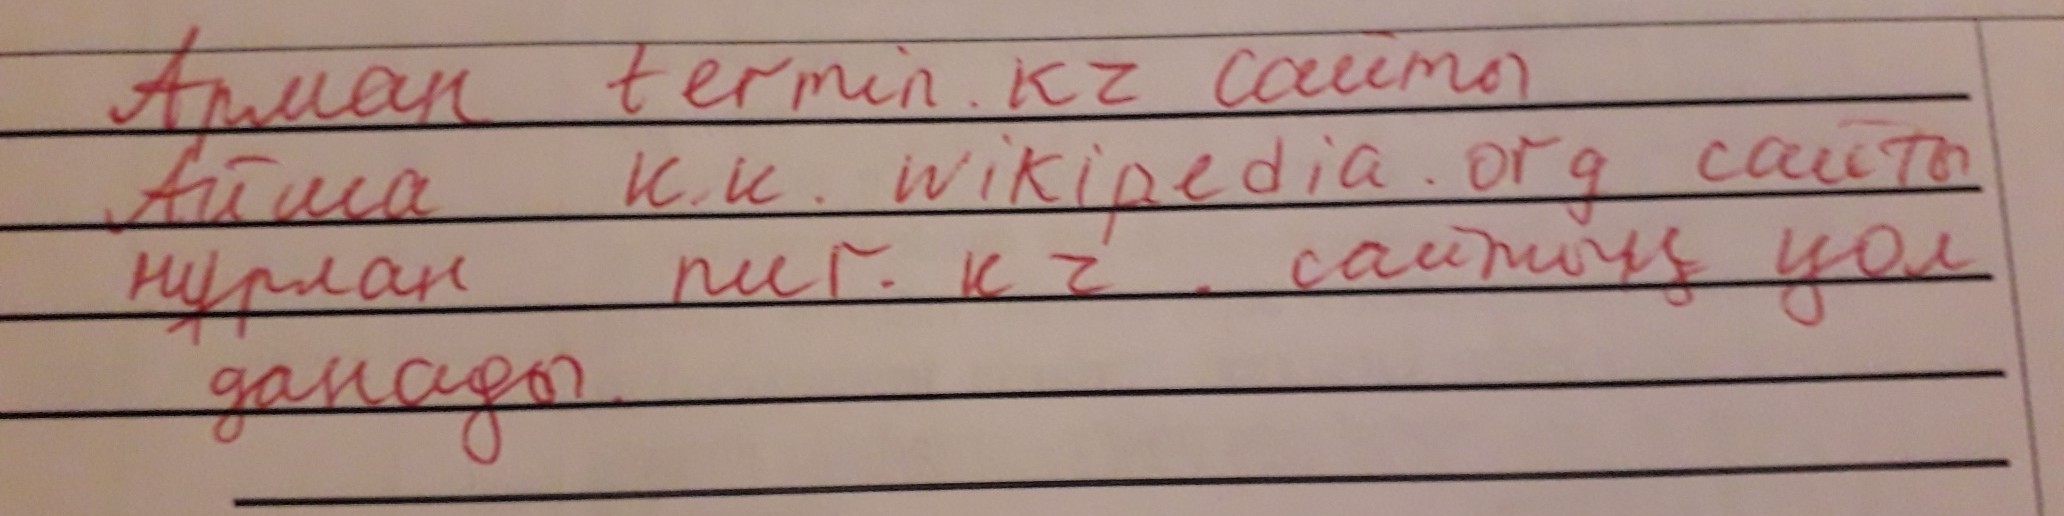 Арман termin.кz сайты
Айша к.к. wikipedia.org сайты
нұрлан nur.кz. сайтың қол
данады.